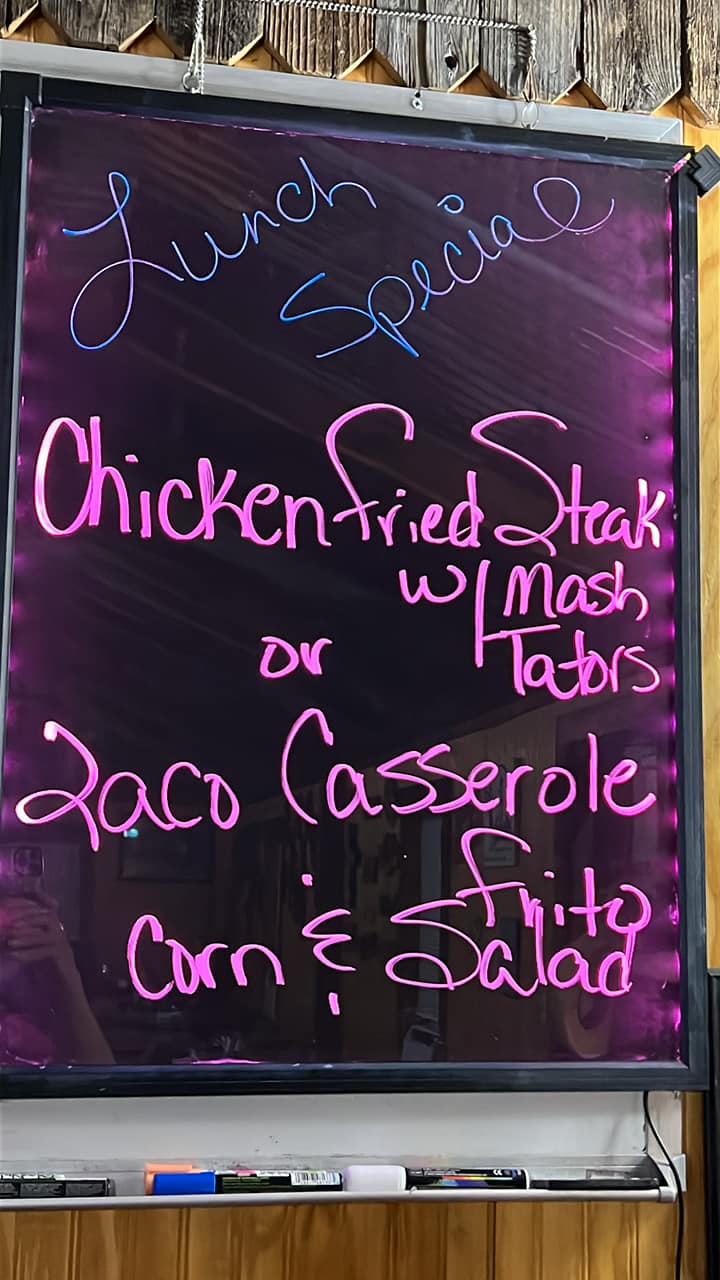 Lunch
Special
Chicken fried Steak
w/ Mash
Tators
or
Taco Casserole
Frito
Corn & Salad